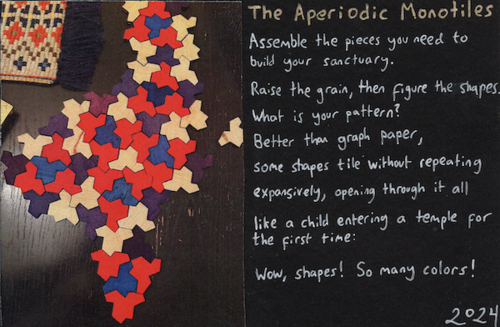 The Aperiodic Monotiles
Assemble the pieces you need to
build your sanctuary.
Raise the grain, then figure the shapes.
What is your pattern?
Better than graph paper,
some shapes tile without repeating
expansively, opening through it all
like a child entering a temple for
the first time:
Wow, shapes! So many colors!
2024